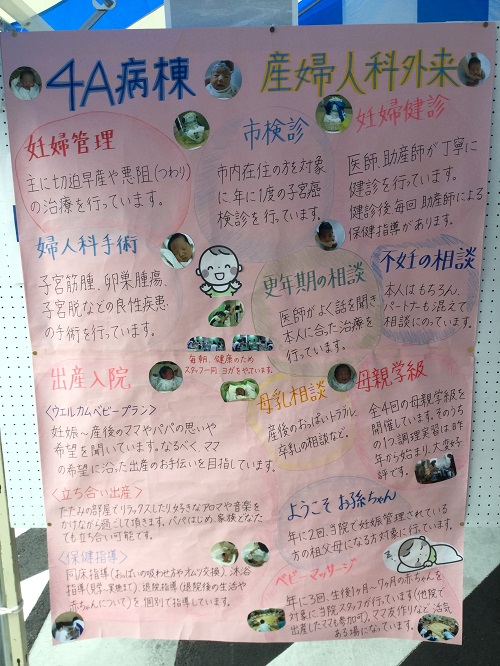 4A病棟
産婦人科外来
妊婦管理
主に切迫早産や悪阻(つわり)
の治療を行っています。
婦人科手術
子宮筋腫、卵巣腫瘍、
子宮脱などの良性疾患
の手術を行います。
出産入院
<ウエルカムベビープラン>
妊娠〜産後のママやパパの思いや
希望を聞いています。なるべく、ママ
の希望に沿った出産のお手伝いを目指しています。
<立ち合い出産>
たたみの部屋でリラックスしたり好きなアロマや音楽を
かけながら過ごして頂きます。パパはじめ、家族どなた
でも立ち合い可能です。
<保健指導>
同床指導(おっぱいの吸わせ方やオムツ交換)、沐浴
指導(見学・実施まで)、退院指導(退院後の生活や
赤ちゃんについて)を個別で指導しています。
市検診
市内在住の方を対象
に年に1度の子宮癌
検診を行っています。
毎朝、健康のため
スタッフ一同、ヨガをやっています。
妊婦健診
医師、助産師が丁寧に
健診を行っています。
健診後毎回助産師による
保健指導があります。
更年期の相談
医師がよく話を聞き
本人に合った治療を
行っています。
不妊の相談
本人はもちろん、
パートナーも混えて
相談にのっています。
母乳相談
産後のおっぱいトラブル、
卒乳の相談など。
母親学級
全4回の母親学級を
開催しています。そのうち
の1つ調理実習は昨
年から始まり、大変好
評です。
ようこそ お孫ちゃん
年に2回、当院で妊娠管理されている
方の祖父母になる方対象に行います。
ベビーマッサージ
年に3回、生後1ヶ月〜7ヶ月の赤ちゃんを
対象に、当院スタッフが行っています(他院で
出産したママも参加可)。ママ友作りなど活気
ある場になっています。